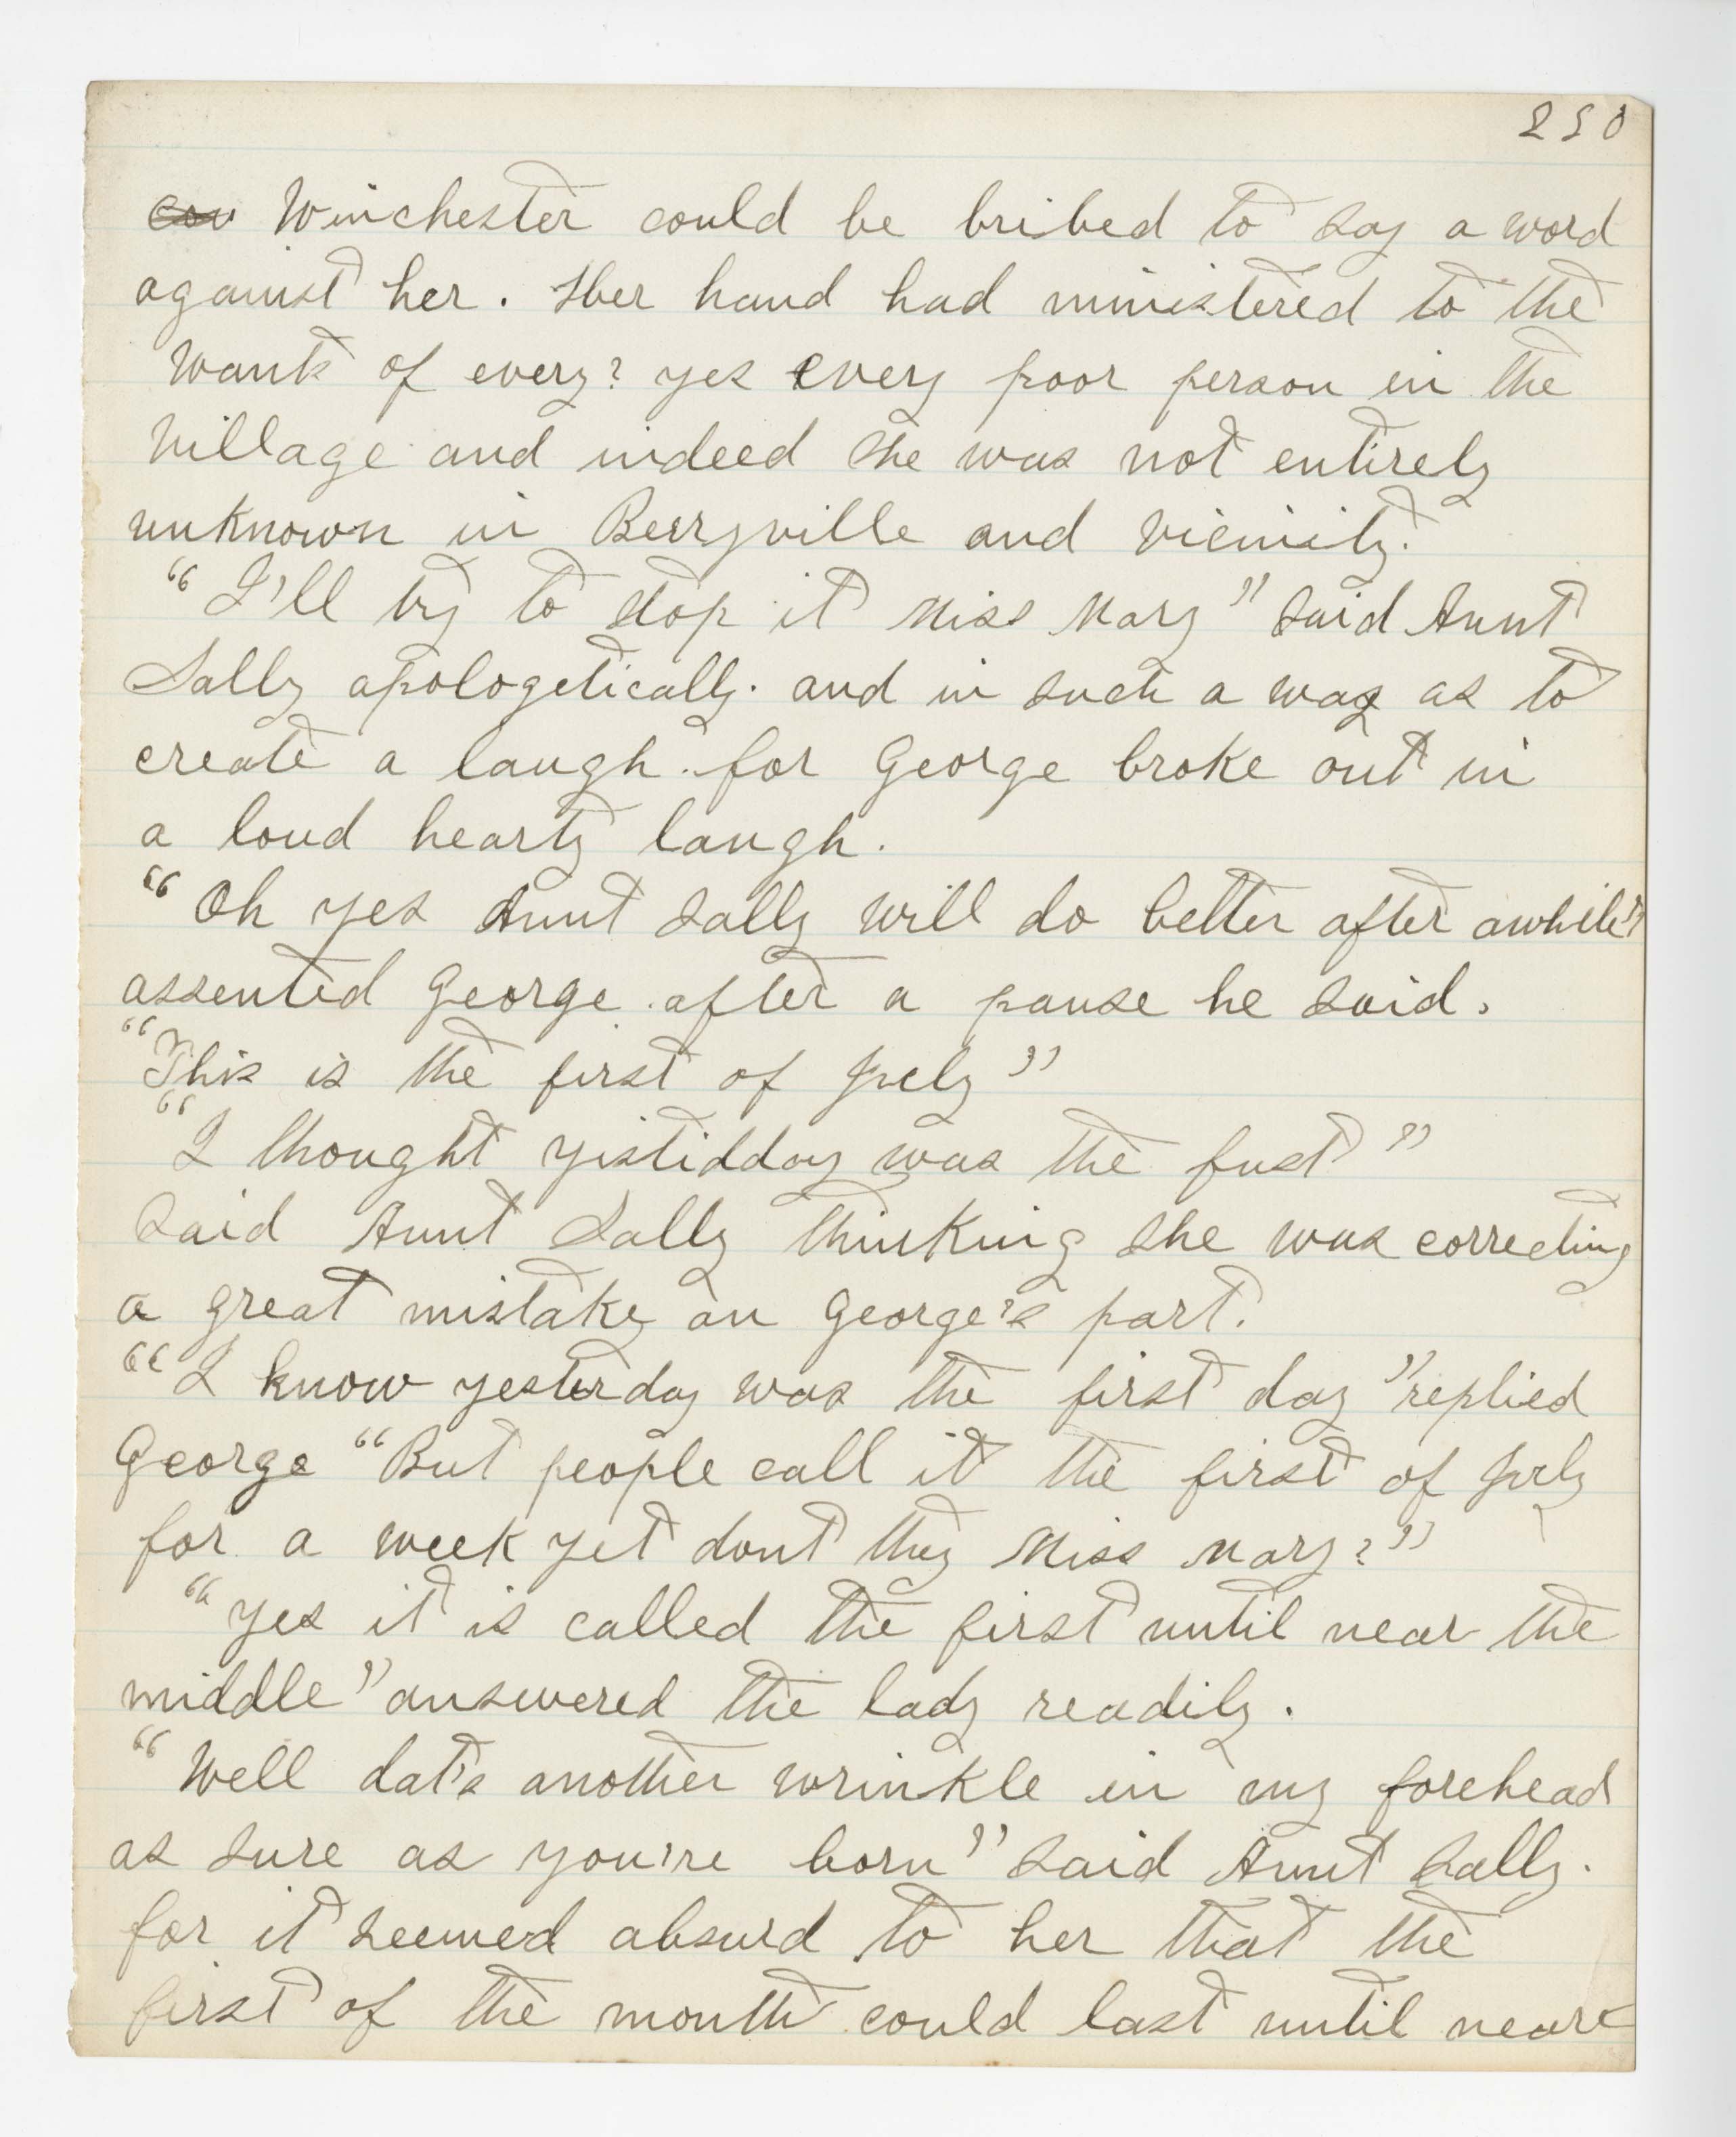 250
Winchester could be bribed to say a word
against her. Her hand had ministered to the
wants of every? yes every poor person in the
village and indeed she was not entirely
unknown in Berryville and vicinity.
"I'll try to stop it Miss Mary" said Aunt
Sally apologetically. and in such a way as to
create a laugh. for George broke out in
a loud hearty laugh.
"Oh yes Aunt Sally will do better after awhile"
assented George. after a pause he said.
"This is the first of July"
"I thought yistidday was the fust"
Said Aunt Sally thinking she was correcting
a great mistake on George's part.
"I know yesterday was the first day" replied
George "But people call it the first of July
for a week yet dont they Miss Mary?"
"Yes it is called the first until near the
middle" answered the lady readily.
"Well dat's another wrinkle in my forehead
as sure as you're born" said Aunt Sally.
for it seemed absurd to her that the
first of the month could last until near